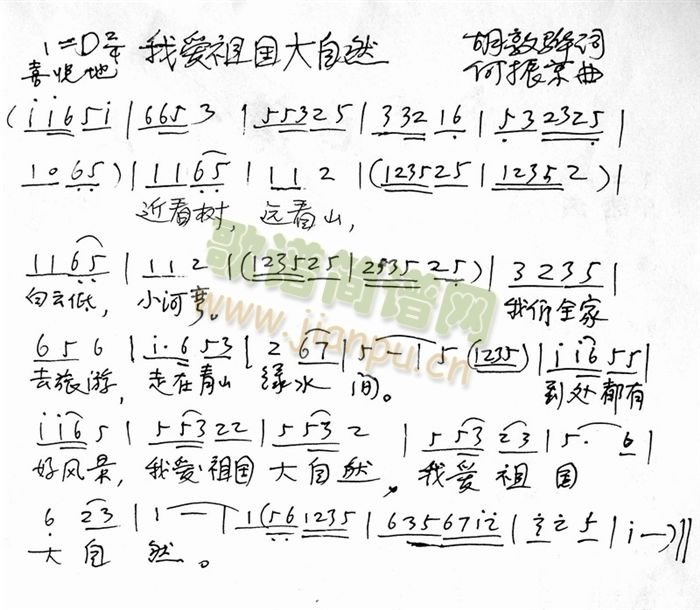 1=D 2/4 我爱祖国大自然 胡敦骅词
喜悦地 何振京曲
(i i 6 5 i | 6 6 5 3 | 5 5 3 2 5 | 3 3 2 1 6 | 5 3 2 3 2 5 |
1 0 6 5) | 1 1 6 5 | 1 1 2 | (1 2 3 5 2 5 | 1 2 3 5 2) |
近看树, 远看山,
1 1 6 5 | 1 1 2 | (1 2 3 5 2 5 | 2 5 3 5 2 5) | 3 2 3 5 |
白云低, 小河弯。 我们全家
6 5 6 | i· 6 5 3 | 2 6 7 | 5 — | 5 (1 2 3 5) | i i 6 5 5 |
去旅游, 走在青山 绿水 间。 到处都有
i i 6 5 | 5 5 3 2 2 | 5 5 3 2 | 5 5 3 2 3 | 5· 6 |
好风景, 我爱祖国 大自然, 我爱祖国
6 2 3 | 1 — | 1 (5 6 1 2 3 5 | 6 3 5 6 7 i 2 | 3 2 5 | i —) ||
大自然。
歌谱简谱网
www.jianpu.cn